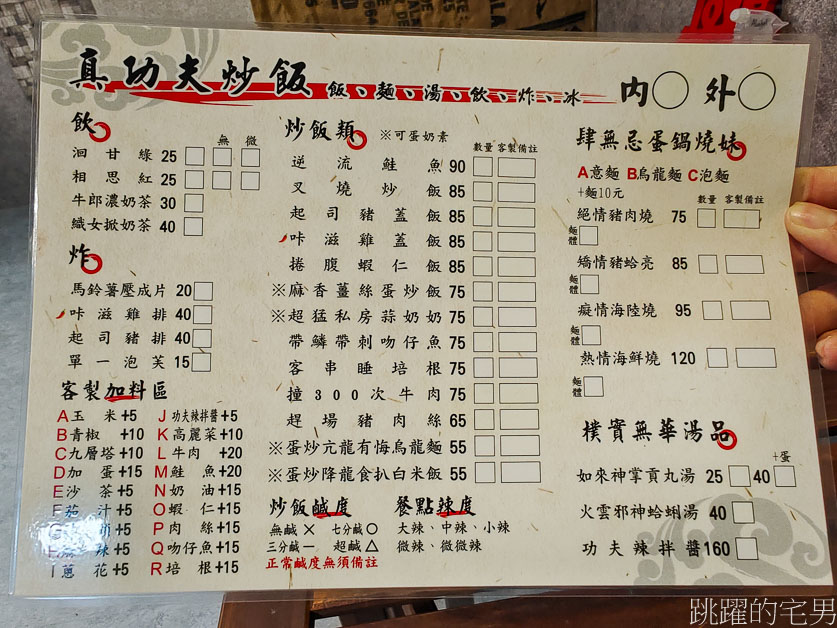 真功夫炒飯 飯、麵、湯、飲、炸、冰 內◯ 外◯
飲
無 微
洄甘綠 25
相思紅 25
牛郎濃奶茶 30
織女掀奶茶 40
炸
馬鈴薯壓成片 20
咔滋雞排 40
起司豬排 40
單一泡芙 15
客製加料區
A玉米+5
B青椒+10
C九層塔+10
D加蛋+15
E沙茶+5
F茄汁+5
辣+5
I蔥花+5
J功夫辣拌醬+5
K高麗菜+10
L牛肉+20
M鮭魚+20
N奶油+15
O蝦仁+15
P肉絲+15
Q吻仔魚+15
R培根+15
炒飯類 ※可蛋奶素
數量 客製備註
逆流鮭魚 90
叉燒炒飯 85
起司豬蓋飯 85
咔滋雞蓋飯 85
捲腹蝦仁飯 85
※麻香薑絲蛋炒飯 75
※超猛私房蒜奶奶 75
帶鱗帶刺吻仔魚 75
客串睡培根 75
撞300次牛肉 75
趕場豬肉絲 65
※蛋炒亢龍有悔烏龍麵 55
※蛋炒降龍食扒白米飯 55
炒飯鹹度
無鹹× 七分鹹○
三分鹹一 超鹹△
正常鹹度無須備註
餐點辣度
大辣、中辣、小辣
微辣、微微辣
肆無忌蛋鍋燒妹
A意麵 B烏龍麵 C泡麵
+麵10元
數量 客製備註
絕情豬肉燒 75
麵體
矯情豬蛤亮 85
麵體
癡情海陸燒 95
麵體
熱情海鮮燒 120
麵體
樸實無華湯品
+蛋
如來神掌貢丸湯 25 40
火雲邪神蛤蜊湯 40
功夫辣拌醬160
跳躍的宅男